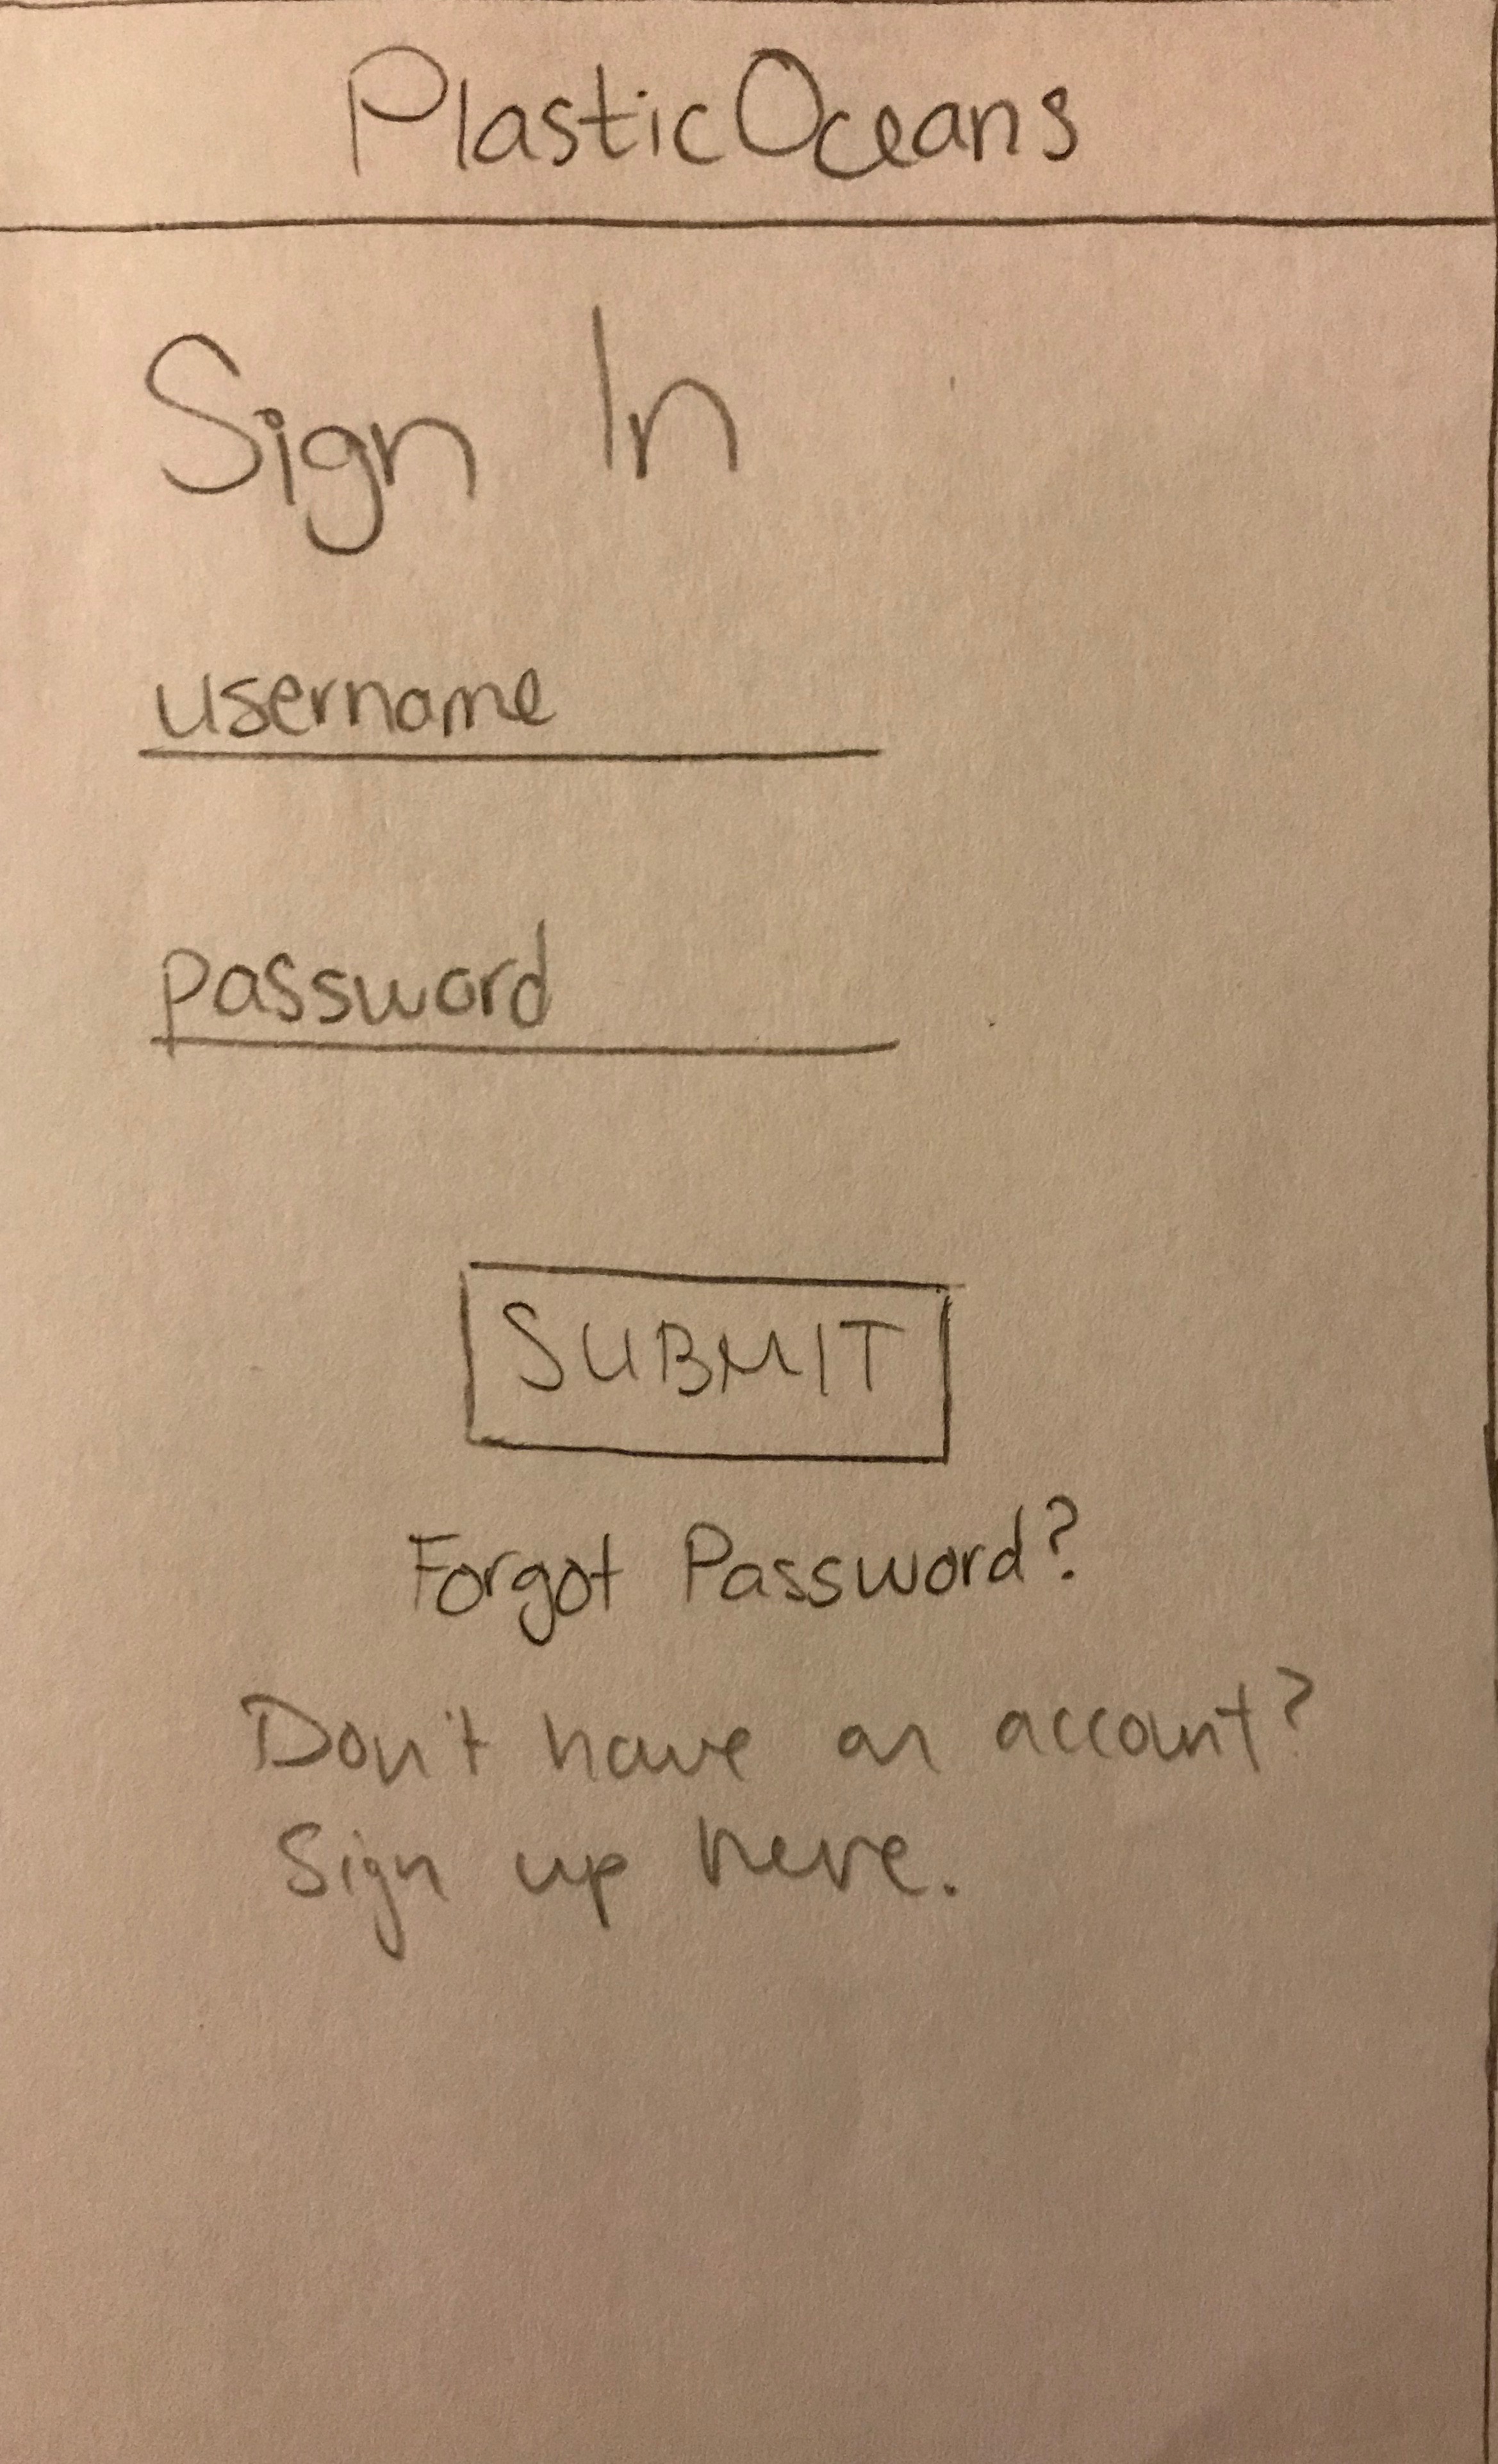 PlasticOceans
Sign In
username
password
SUBMIT
Forgot Password?
Don't have an account?
Sign up here.